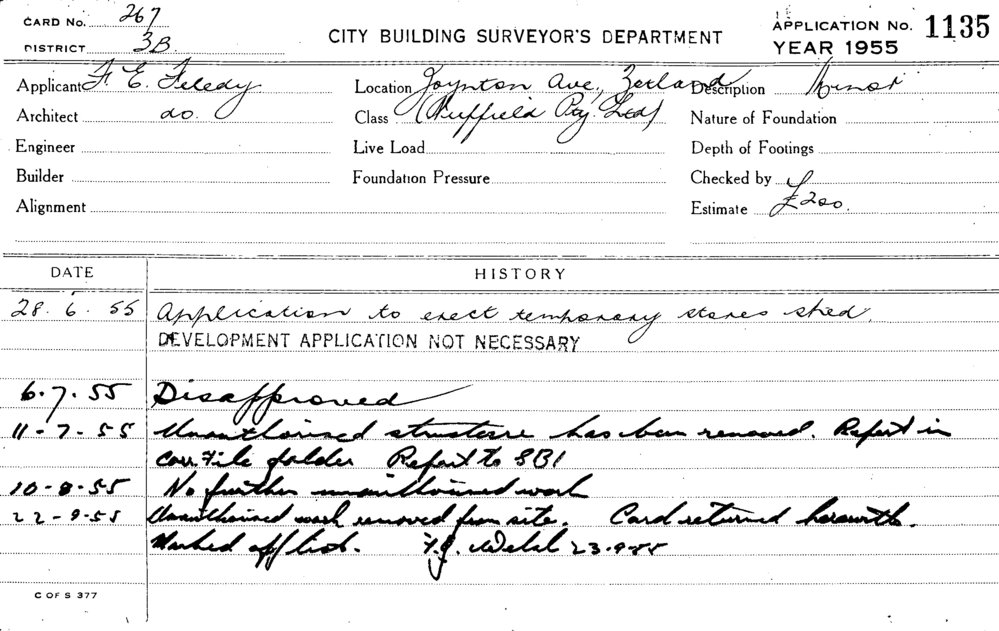 CARD No. 267
DISTRICT 3B
CITY BUILDING SURVEYOR'S DEPARTMENT
APPLICATION No. 1135
YEAR 1955
Applicant F. E. Feledy Location Joynton Ave, Zetland Description Minor
Architect do. Class (Nuffield Pty. Ltd) Nature of Foundation
Engineer Live Load Depth of Footings
Builder Foundation Pressure Checked by
Alignment Estimate £200.
DATE HISTORY
28. 6. 55 Application to erect temporary stores shed.
DEVELOPMENT APPLICATION NOT NECESSARY
6.7.55 Disapproved
11-7-55 Unauthorised structure has been removed. Report in
Corr. File folder Report to SBI
10-8-55 No further unauthorised work
22-9-55 Unauthorised work removed from site. Card returned herewith.
Marked off list. F.J. 23-9-55
C OF S 377